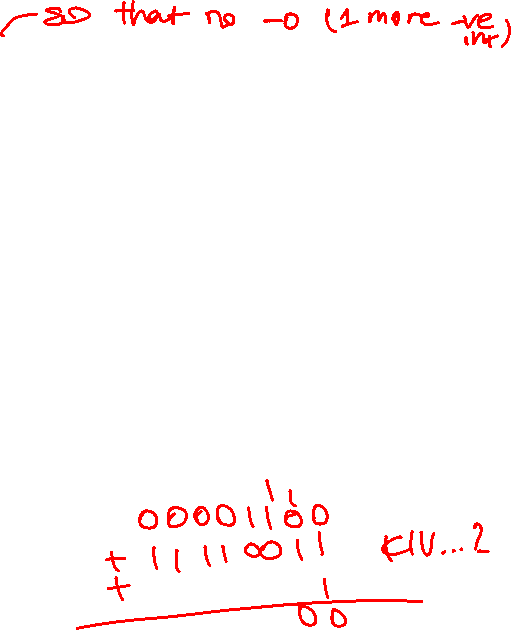 so that no -0 (1 more -ve
int)
1 1
00001100
+ 11110011 KIV...2
+ 1
00